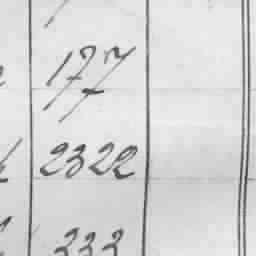 177
2322
333